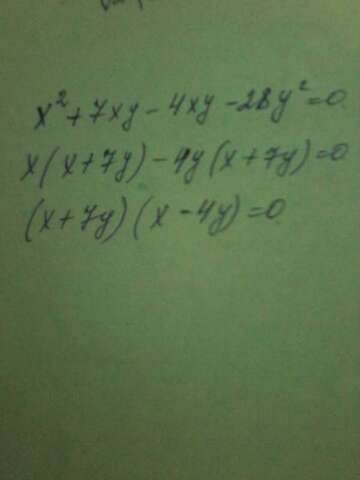 x² + 7xy - 4xy - 28y² = 0
x(x + 7y) - 4y(x + 7y) = 0
(x + 7y)(x - 4y) = 0